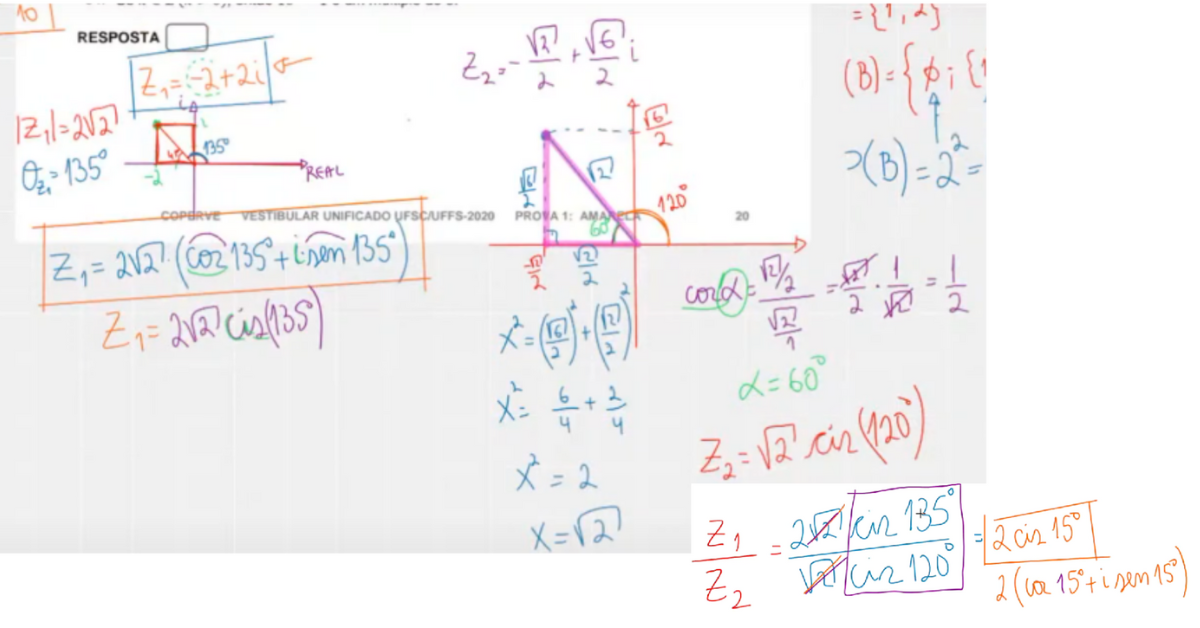 10
RESPOSTA
Z₁=-2+2i
|Z₁|=2√2
θ_Z₁=135°
i
45°
135°
-2
REAL
COPERVE VESTIBULAR UNIFICADO UFSC/UFFS-2020 PROVA 1: AMARELA 20
Z₁=2√2·(cos135°+i·sen135°)
Z₁=2√2 cis(135°)
Z₂=-√2/2+√6/2 i
√6/2
√6/2
√2
120°
60°
-√2/2
√2/2
x²=(√6/2)²+(√2/2)²
x²=6/4+2/4
x²=2
x=√2
={1,2}
(B)={∅;{1
(B)=2²=
cosα=(√2/2)/(√2/1)=√2/2·1/√2=1/2
α=60°
Z₂=√2 cis(120°)
Z₁/Z₂=2√2 cis 135°/√2 cis 120°=2 cis 15°
2(cos 15°+i sen 15°)